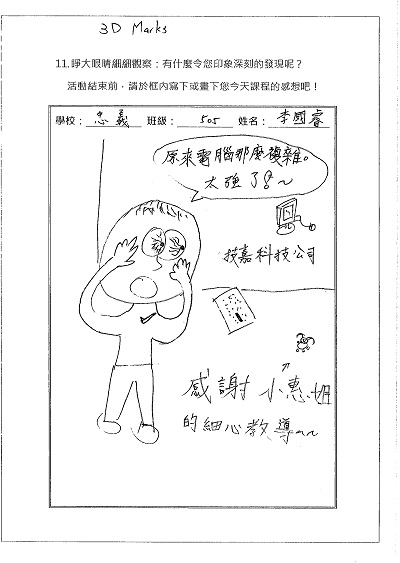 3D Marks
11.睜大眼睛細細觀察：有什麼令您印象深刻的發現呢？
活動結束前，請於框內寫下或畫下您今天課程的感想吧！
學校： 忠義 班級： 505 姓名： 李國睿
原來電腦那麼複雜。
太強了!~
技嘉科技公司
感謝小惠姐
的細心教導~~